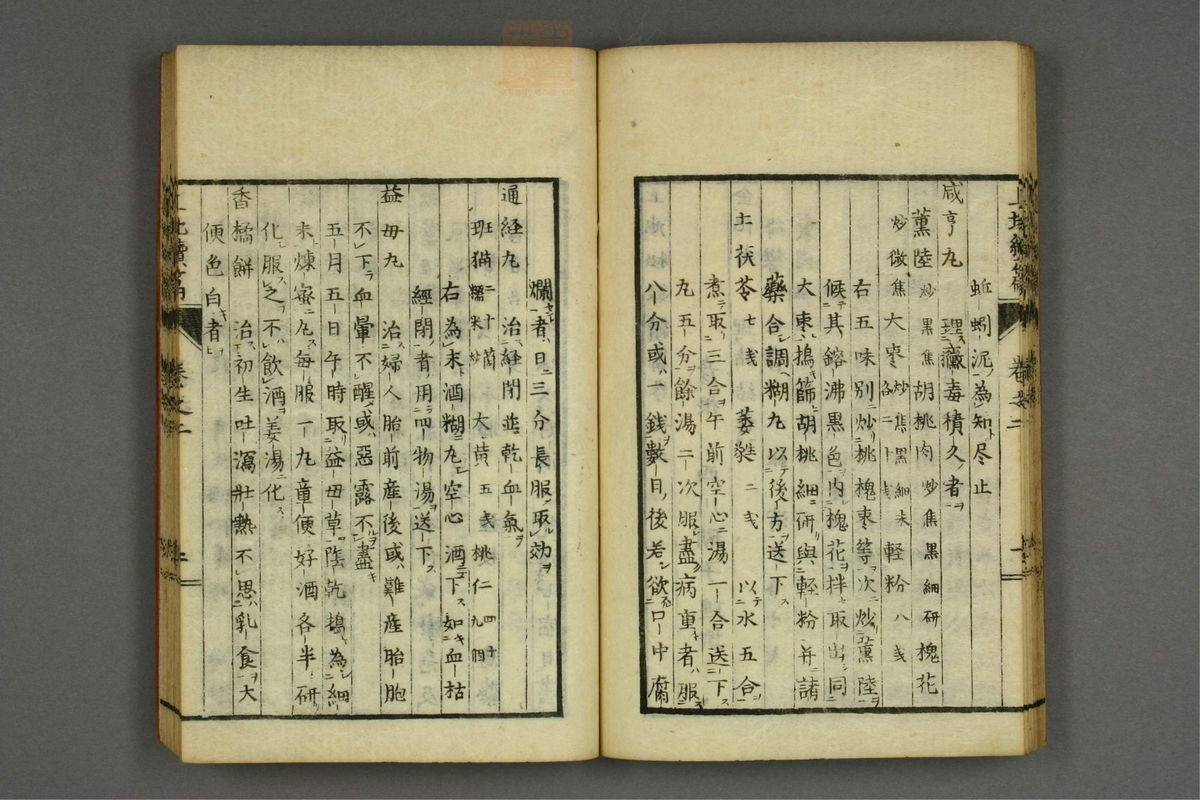 蚯蚓泥為知尽止
咸亨丸　理癥毒積久者
薫陸炒黒焦胡桃肉炒焦黒細研槐花
炒微焦大棗炒焦黒細末各二十戔軽粉八戔
右五味別炒桃槐棗等次炒薫陸
候其鎔沸黒色内槐花拌取出同
大棗搗篩胡桃細研與軽粉并諸
藥合調糊丸以後方送下
土茯苓七戔　萎甤二戔　以水五合
煮取三合午前空心湯一合送下
丸五分餘湯二次服盡病重者服
八分或一銭數日後若欲口中腐
爛者日三分長服取効
通経丸　治経閉並乾血氣
班猫二十箇糯米炒大黄五戔桃仁四十九個
右為末酒糊丸空心酒下如血枯
經閉者用四物湯送下
益母丸　治婦人胎前産後或難産胎胞
不下血暈不醒或惡露不盡
五月五日午時取益母草陰乾搗為細
末煉蜜丸每服一丸童便好酒各半研
化服之不飲酒姜湯化
香橘餅　治初生吐瀉壯熱不思乳食大
便色白者
卷之二